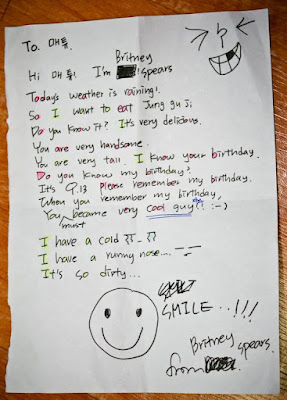 To. 매튜.
Hi 매튜! I'm Britney spears
Today's weather is raining!.
So I want to eat Jung gu Ji
Do you know it? It's very delicious.
You are very handsome.
You are very tall. I know your birthday.
Do you know my birthday?
It's 9.13 please remember my birthday.
When you remember my birthday,
You must became very cool guy!! :-)
I have a cold ㅠ-ㅠ
I have a runny nose... ㅡㅡ
It's so dirty...
SMILE...!!!
from Britney spears.